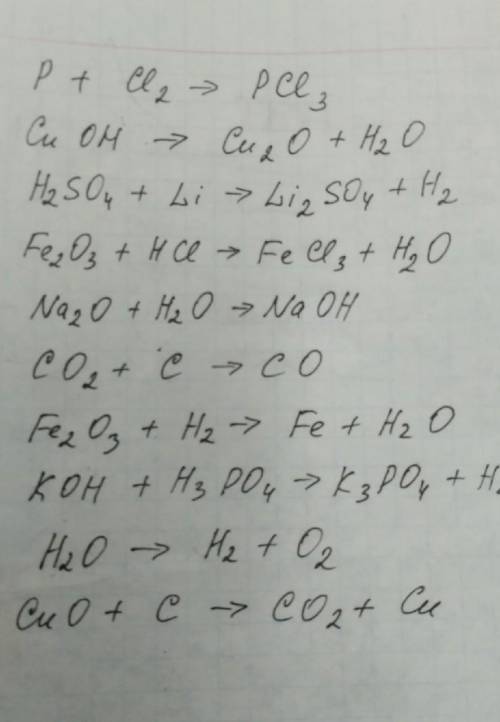 P + Cl₂ → PCl₃
CuOH → Cu₂O + H₂O
H₂SO₄ + Li → Li₂SO₄ + H₂
Fe₂O₃ + HCl → FeCl₃ + H₂O
Na₂O + H₂O → NaOH
CO₂ + C → CO
Fe₂O₃ + H₂ → Fe + H₂O
KOH + H₃PO₄ → K₃PO₄ + H₂
H₂O → H₂ + O₂
CuO + C → CO₂ + Cu